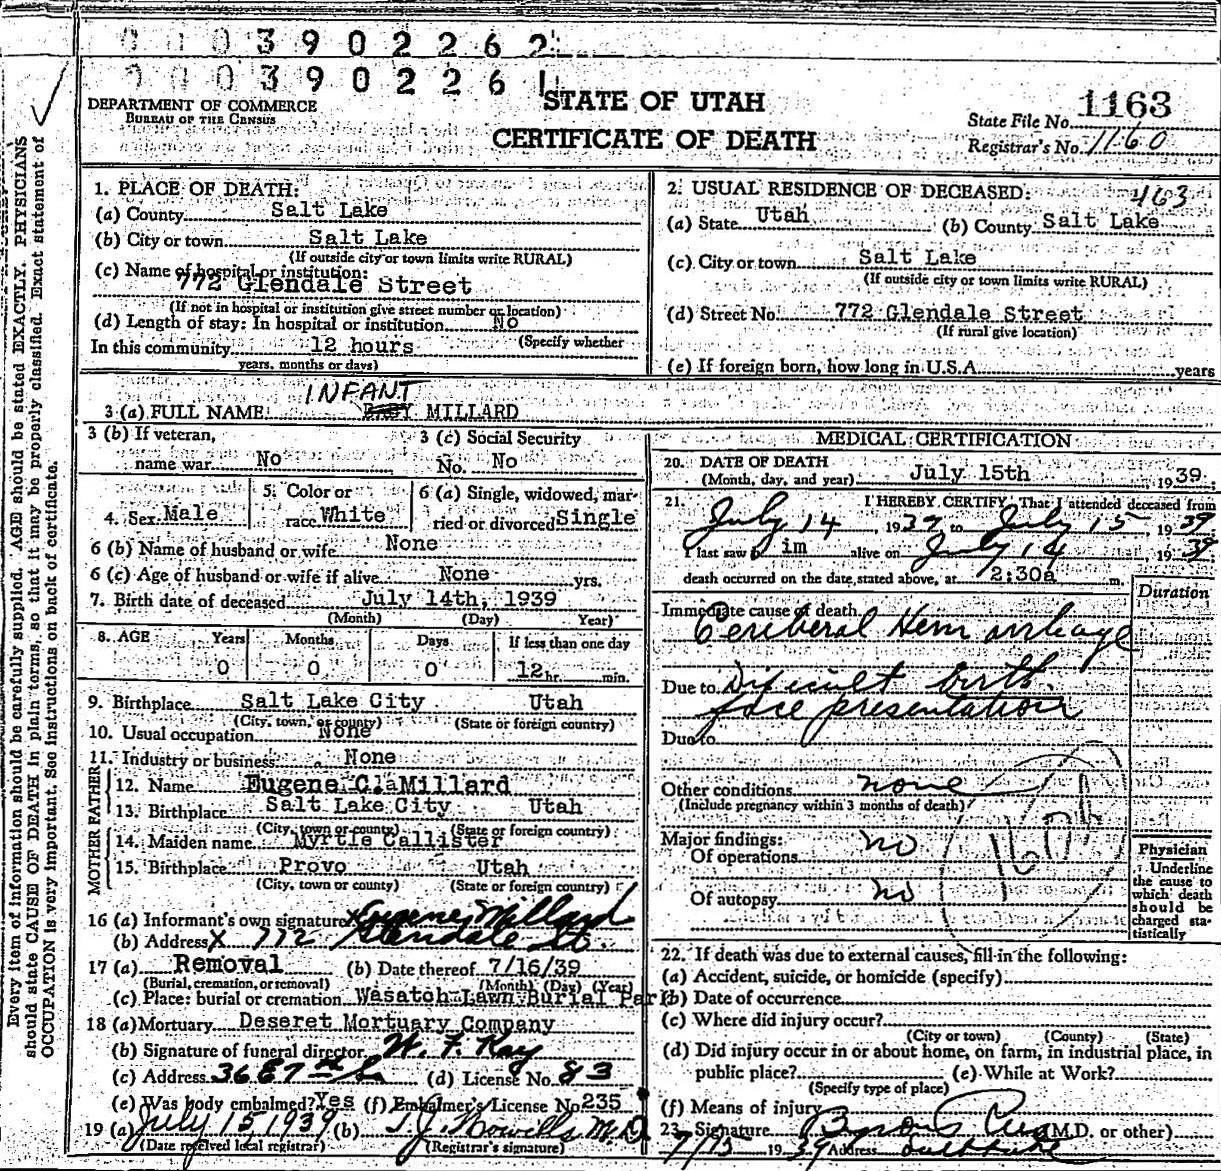 0003902262
0003902261
DEPARTMENT OF COMMERCE
BUREAU OF THE CENSUS
STATE OF UTAH
CERTIFICATE OF DEATH
State File No. 1163
Registrar's No. 1160
Every item of information should be carefully supplied. AGE should be stated EXACTLY. PHYSICIANS
should state CAUSE OF DEATH in plain terms, so that it may be properly classified. Exact statement of
OCCUPATION is very important. See instructions on back of certificate.
1. PLACE OF DEATH:
(a) County Salt Lake
(b) City or town Salt Lake
(If outside city or town limits write RURAL)
(c) Name of hospital or institution:
772 Glendale Street
(If not in hospital or institution give street number or location)
(d) Length of stay: In hospital or institution No
(Specify whether
In this community 12 hours
years, months or days)
2. USUAL RESIDENCE OF DECEASED: 463
(a) State Utah (b) County Salt Lake
(c) City or town Salt Lake
(If outside city or town limits write RURAL)
(d) Street No. 772 Glendale Street
(If rural give location)
(e) If foreign born, how long in U.S.A. years
INFANT
3 (a) FULL NAME BABY MILLARD
3 (b) If veteran,
name war No
3 (c) Social Security
No. No
4. Sex Male
5. Color or
race White
6 (a) Single, widowed, mar-
ried or divorced Single
6 (b) Name of husband or wife None
6 (c) Age of husband or wife if alive None yrs.
7. Birth date of deceased July 14th, 1939
(Month) (Day) Year)
8. AGE Years Months Days If less than one day
0 0 0 12 hr. min.
9. Birthplace Salt Lake City Utah
(City, town, or county) (State or foreign country)
10. Usual occupation None
11. Industry or business None
FATHER
12. Name Eugene C. Millard
13. Birthplace Salt Lake City Utah
(City, town or county) (State or foreign country)
MOTHER
14. Maiden name Myrtle Callister
15. Birthplace Provo Utah
(City, town or county) (State or foreign country)
16 (a) Informant's own signature x Eugene Millard
(b) Address x 772 Glendale St
17 (a) Removal (b) Date thereof 7/16/39
(Burial, cremation, or removal) (Month) (Day) (Year)
(c) Place: burial or cremation Wasatch Lawn Burial Park
18 (a) Mortuary Deseret Mortuary Company
(b) Signature of funeral director W. F. Kay
(c) Address 36 E 7th So (d) License No. 83
(e) Was body embalmed? Yes (f) Embalmer's License No. 235
19 (a) July 15, 1939 (b) T. J. Howells M.D.
(Date received local registrar) (Registrar's signature)
MEDICAL CERTIFICATION
20. DATE OF DEATH
(Month, day, and year) July 15th 1939.
21. I HEREBY CERTIFY, That I attended deceased from
July 14, 1939 to July 15, 1939
I last saw h im alive on July 14 1939
death occurred on the date stated above, at 2:30a m.
Duration
Immediate cause of death
Cereberal Hem orrhage
Due to Dificult birth
face presentation
Due to
Other conditions none
(Include pregnancy within 3 months of death)
160a
Major findings:
Of operations no
Of autopsy no
Physician
Underline
the cause to
which death
should be
charged sta-
tistically
22. If death was due to external causes, fill in the following:
(a) Accident, suicide, or homicide (specify)
(b) Date of occurrence
(c) Where did injury occur?
(City or town) (County) (State)
(d) Did injury occur in or about home, on farm, in industrial place, in
public place? (e) While at Work?
(Specify type of place)
(f) Means of injury
23. Signature Byron (M.D. or other)
7/15 1939 Address